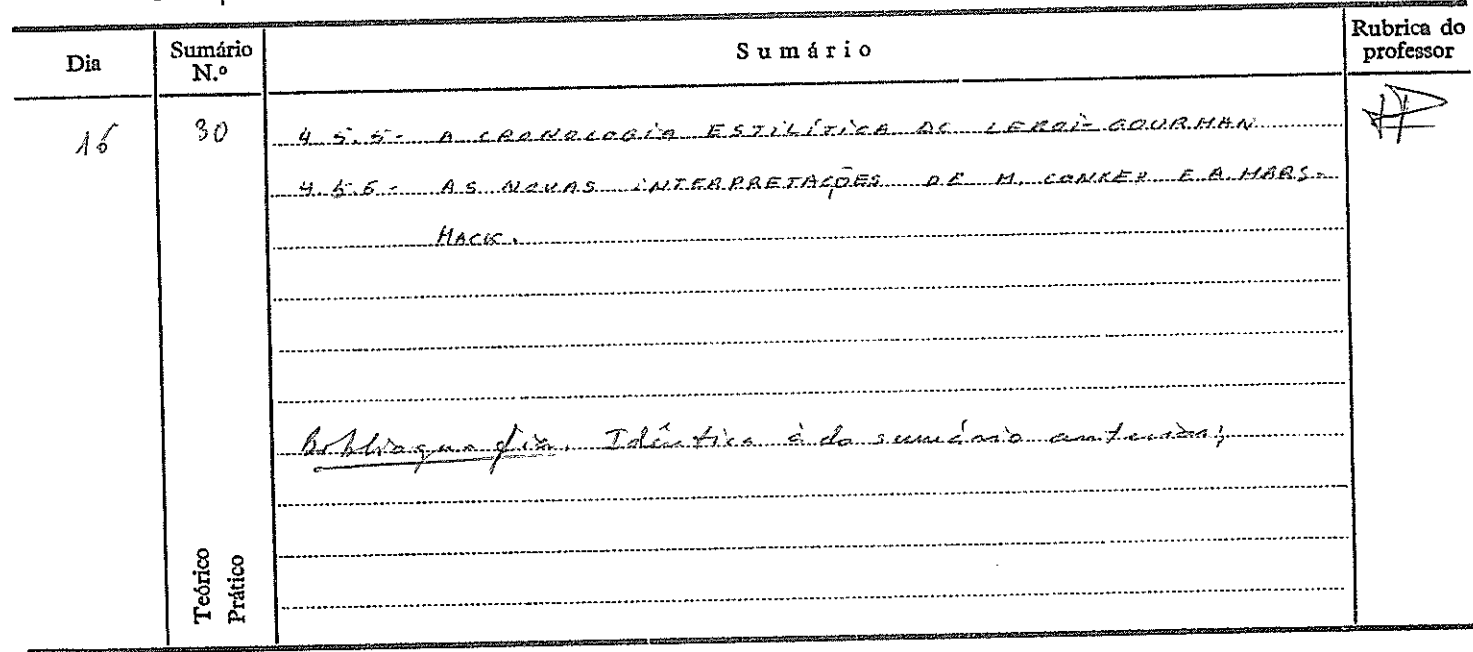 Dia
Sumário N.º
Sumário
Rubrica do professor
16
30
4.5.5- A CRONOLOGIA ESTILÍTICA DE LEROI-GOURHAN
4.5.6- AS NOVAS INTERPRETAÇÕES DE M. CONKEY E A. MARS-
HACK.
Bibliografia. Idêntica à do sumário anterior;
Teórico
Prático